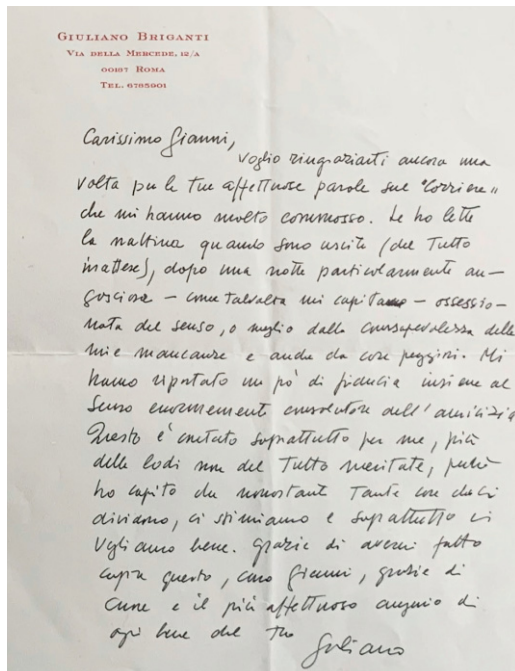 GIULIANO BRIGANTI
VIA DELLA MERCEDE, 12/A
00187 ROMA
TEL. 6785901
Carissimo Gianni,
voglio ringraziarti ancora una
volta per le tue affettuose parole sul "Corriere"
che mi hanno molto commosso. Le ho lette
la mattina quando sono uscite (del tutto
inattese), dopo una notte particolarmente an-
gosciosa – come talvolta mi capita – ossessio-
nata dal senso, o meglio dalla consapevolezza delle
mie mancanze e anche da cose peggiori. Mi
hanno riportato un pò di fiducia insieme al
senso enormemente consolatore dell'amicizia
Questo è contato soprattutto per me, più
delle lodi non del tutto meritate, perché
ho capito che nonostante tante cose che ci
dividono, ci stimiamo e soprattutto ci
vogliamo bene. Grazie di avermi fatto
capire questo, caro Gianni, grazie di
cuore e il più affettuoso augurio di
ogni bene dal tuo
Giuliano